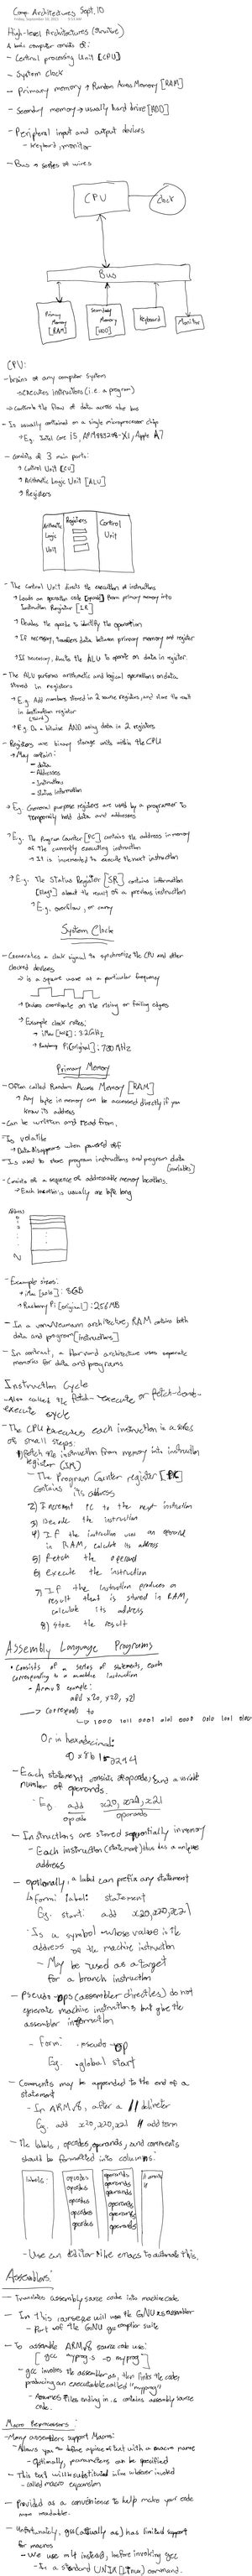 Comp. Architectures Sept. 10
Friday, September 10, 2021 9:13 AM
High-level Architectures (Overview)
A basic computer consists of:
- Central processing Unit [CPU]
- System Clock
- Primary memory → Random Access Memory [RAM]
- Secondary memory → usually hard drive [HDD]
- Peripheral input and output devices
- Keyboard, monitor
- Bus → series of wires
CPU
Clock
Bus
Primary Memory [RAM]
Secondary Memory [HDD]
Keyboard
Monitor
CPU:
- brains of any computer system
→ executes instructions (i.e. a program)
→ Controls the flow of data across the bus
- Is usually contained on a single microprocessor chip
→ E.g. Intel Core i5, Apple A7
- consists of 3 main parts:
→ Control Unit [CU]
→ Arithmetic Logic Unit [ALU]
→ Registers
Arithmetic Logic Unit
Registers
Control Unit
- The Control Unit directs the execution of instructions
→ Loads an operation code [opcode] from primary memory into
Instruction Register [IR]
→ Decodes the opcode to identify the operation
→ If necessary, transfers data between primary memory and register
→ If necessary, directs the ALU to operate on data in register.
- The ALU performs arithmetic and logical operations on data
stored in registers
→ E.g. Add numbers stored in 2 source registers, and store the result
in destination register
→ E.g. Do a bitwise AND using data in 2 registers
- Registers are binary storage units within the CPU
→ May contain:
- data
- Addresses
- Instructions
- Status information
→ Eg. General purpose registers are used by a programmer to
temporarily hold data and addresses
→ E.g. The Program Counter [PC] contains the address in memory
of the currently executing instruction
→ It is incremented to execute the next instruction
→ E.g. The Status Register [SR] contains information
[flags] about the result of a previous instruction
→ E.g. overflow, or carry
System Clock
- Generates a clock signal to synchronize the CPU and other
clocked devices
→ is a square wave at a particular frequency
→ Devices coordinate on the rising or falling edges
→ Example clock rates:
→ iMac: 3.2GHz
→ Raspberry Pi [original]: 700 MHz
Primary Memory
- Often called Random Access Memory [RAM]
→ Any byte in memory can be accessed directly if you
know its address
- Can be written and read from.
- Is volatile
→ Data disappears when powered off
- Is used to store program instructions and program data
[variables]
- Consists of a sequence of addressable memory locations.
→ Each location is usually one byte long
Address
0
1
2
N
- Example sizes:
→ iMac: 8GB
→ Raspberry Pi [original]: 256MB
- In a von Neumann architecture, RAM contains both
data and program [instructions]
- In contrast, a Harvard architecture uses separate
memories for data and programs
Instruction Cycle
- Also called the fetch-execute or fetch-decode-
execute cycle
- The CPU executes each instruction in a series
of small steps:
1) Fetch the instruction from memory into instruction
register
- The Program Counter register [PC]
contains its address
2) Increment PC to the next instruction
3) Decode the instruction
4) If the instruction uses an operand
in RAM, calculate its address
5) Fetch the operand
6) execute the instruction
7) If the instruction produces a
result that is stored in RAM,
calculate its address
8) store the result
Assembly Language Programs
• Consists of a series of statements, each
corresponding to a machine instruction
- Armv8 example:
add x20, x20, x21
→ Corresponds to
→ 1000 1011 0001 0101 0000 0010 1001 0100
Or in hexadecimal:
0x8b150294
- Each statement consists of opcode, and a variable
number of operands.
- Eg. add x20, x20, x21
opcode operands
- Instructions are stored sequentially in memory
- Each instruction (statement) thus has a unique
address
- optionally, a label can prefix any statement
↳ form: label: statement
Eg. start: add x20, x20, x21
- Is a symbol whose value is the
address of the machine instruction
- May be used as a target
for a branch instruction
- Pseudo-ops (assembler directives) do not
generate machine instructions, but give the
assembler information
- form: .pseudo-op
Eg. .global start
- Comments may be appended to the end of a
statement
- In ARMv8, after a // delimiter
Eg. add x20, x20, x21 // add term
- The labels, opcodes, operands, and comments
should be formatted into columns:
labels:
opcodes
opcodes
opcodes
opcodes
opcodes
operands
operands
operands
operands
operands
operands
//
- Use an Editor like emacs to automate this.
Assemblers:
- Translates assembly source code into machine code
- In this course we will use the GNU as assembler
- Part of the GNU gcc compiler suite
- To assemble ARMv8 source code use:
[ gcc myprog.s -o myprog ]
- gcc invokes the assembler as, then links the code,
producing an executable called "myprog"
- Assumes files ending in .s contains assembly source
code.
Macro Preprocessors:
- Many assemblers support Macros:
- Allows you to define a piece of text with a macro name
- Optionally, parameters can be specified
- This text will be substituted inline wherever invoked
- called macro expansion
- Provided as a convenience to help make your code
more readable.
- Unfortunately, gcc (actually as) has limited support
for macros
- We use m4 instead, before invoking gcc
- Is a standard UNIX (Linux) command.